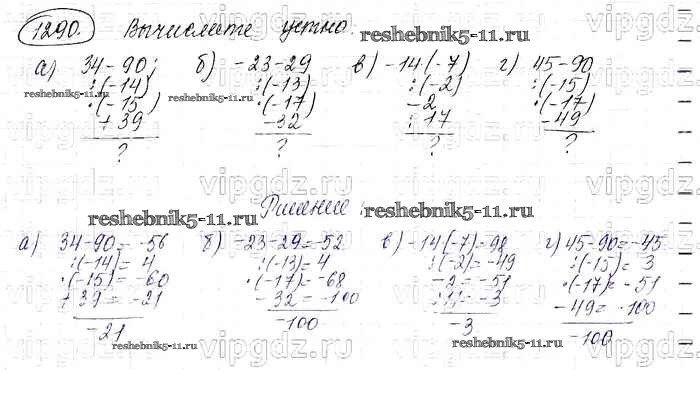 1290. Вычислите устно. reshebnik5-11.ru
а) 34-90; б) -23-29 в) -14(-7) г) 45-90
:(-14) :(-13) :(-2) :(-15)
reshebnik5-11.ru :(-15) reshebnik5-11.ru :(-17) -2 :(-17)
+39 -32 :17 -49
? ? ? ?
vipgdz.ru vipgdz.ru vipgdz.ru
reshebnik5-11.ru Решение: reshebnik5-11.ru
а) 34-90=-56 б) -23-29=-52 в) -14(-7)=98 г) 45-90=-45
:(-14)=4 :(-13)=4 :(-2)=-49 :(-15)=3
·(-15)=-60 ·(-17)=-68 -2=-51 ·(-17)=-51
+39=-21 -32=-100 :17=-3 -49=-100
-21 -100 -3 -100
reshebnik5-11.ru reshebnik5-11.ru reshebnik5-11.ru
vipgdz.ru vipgdz.ru vipgdz.ru